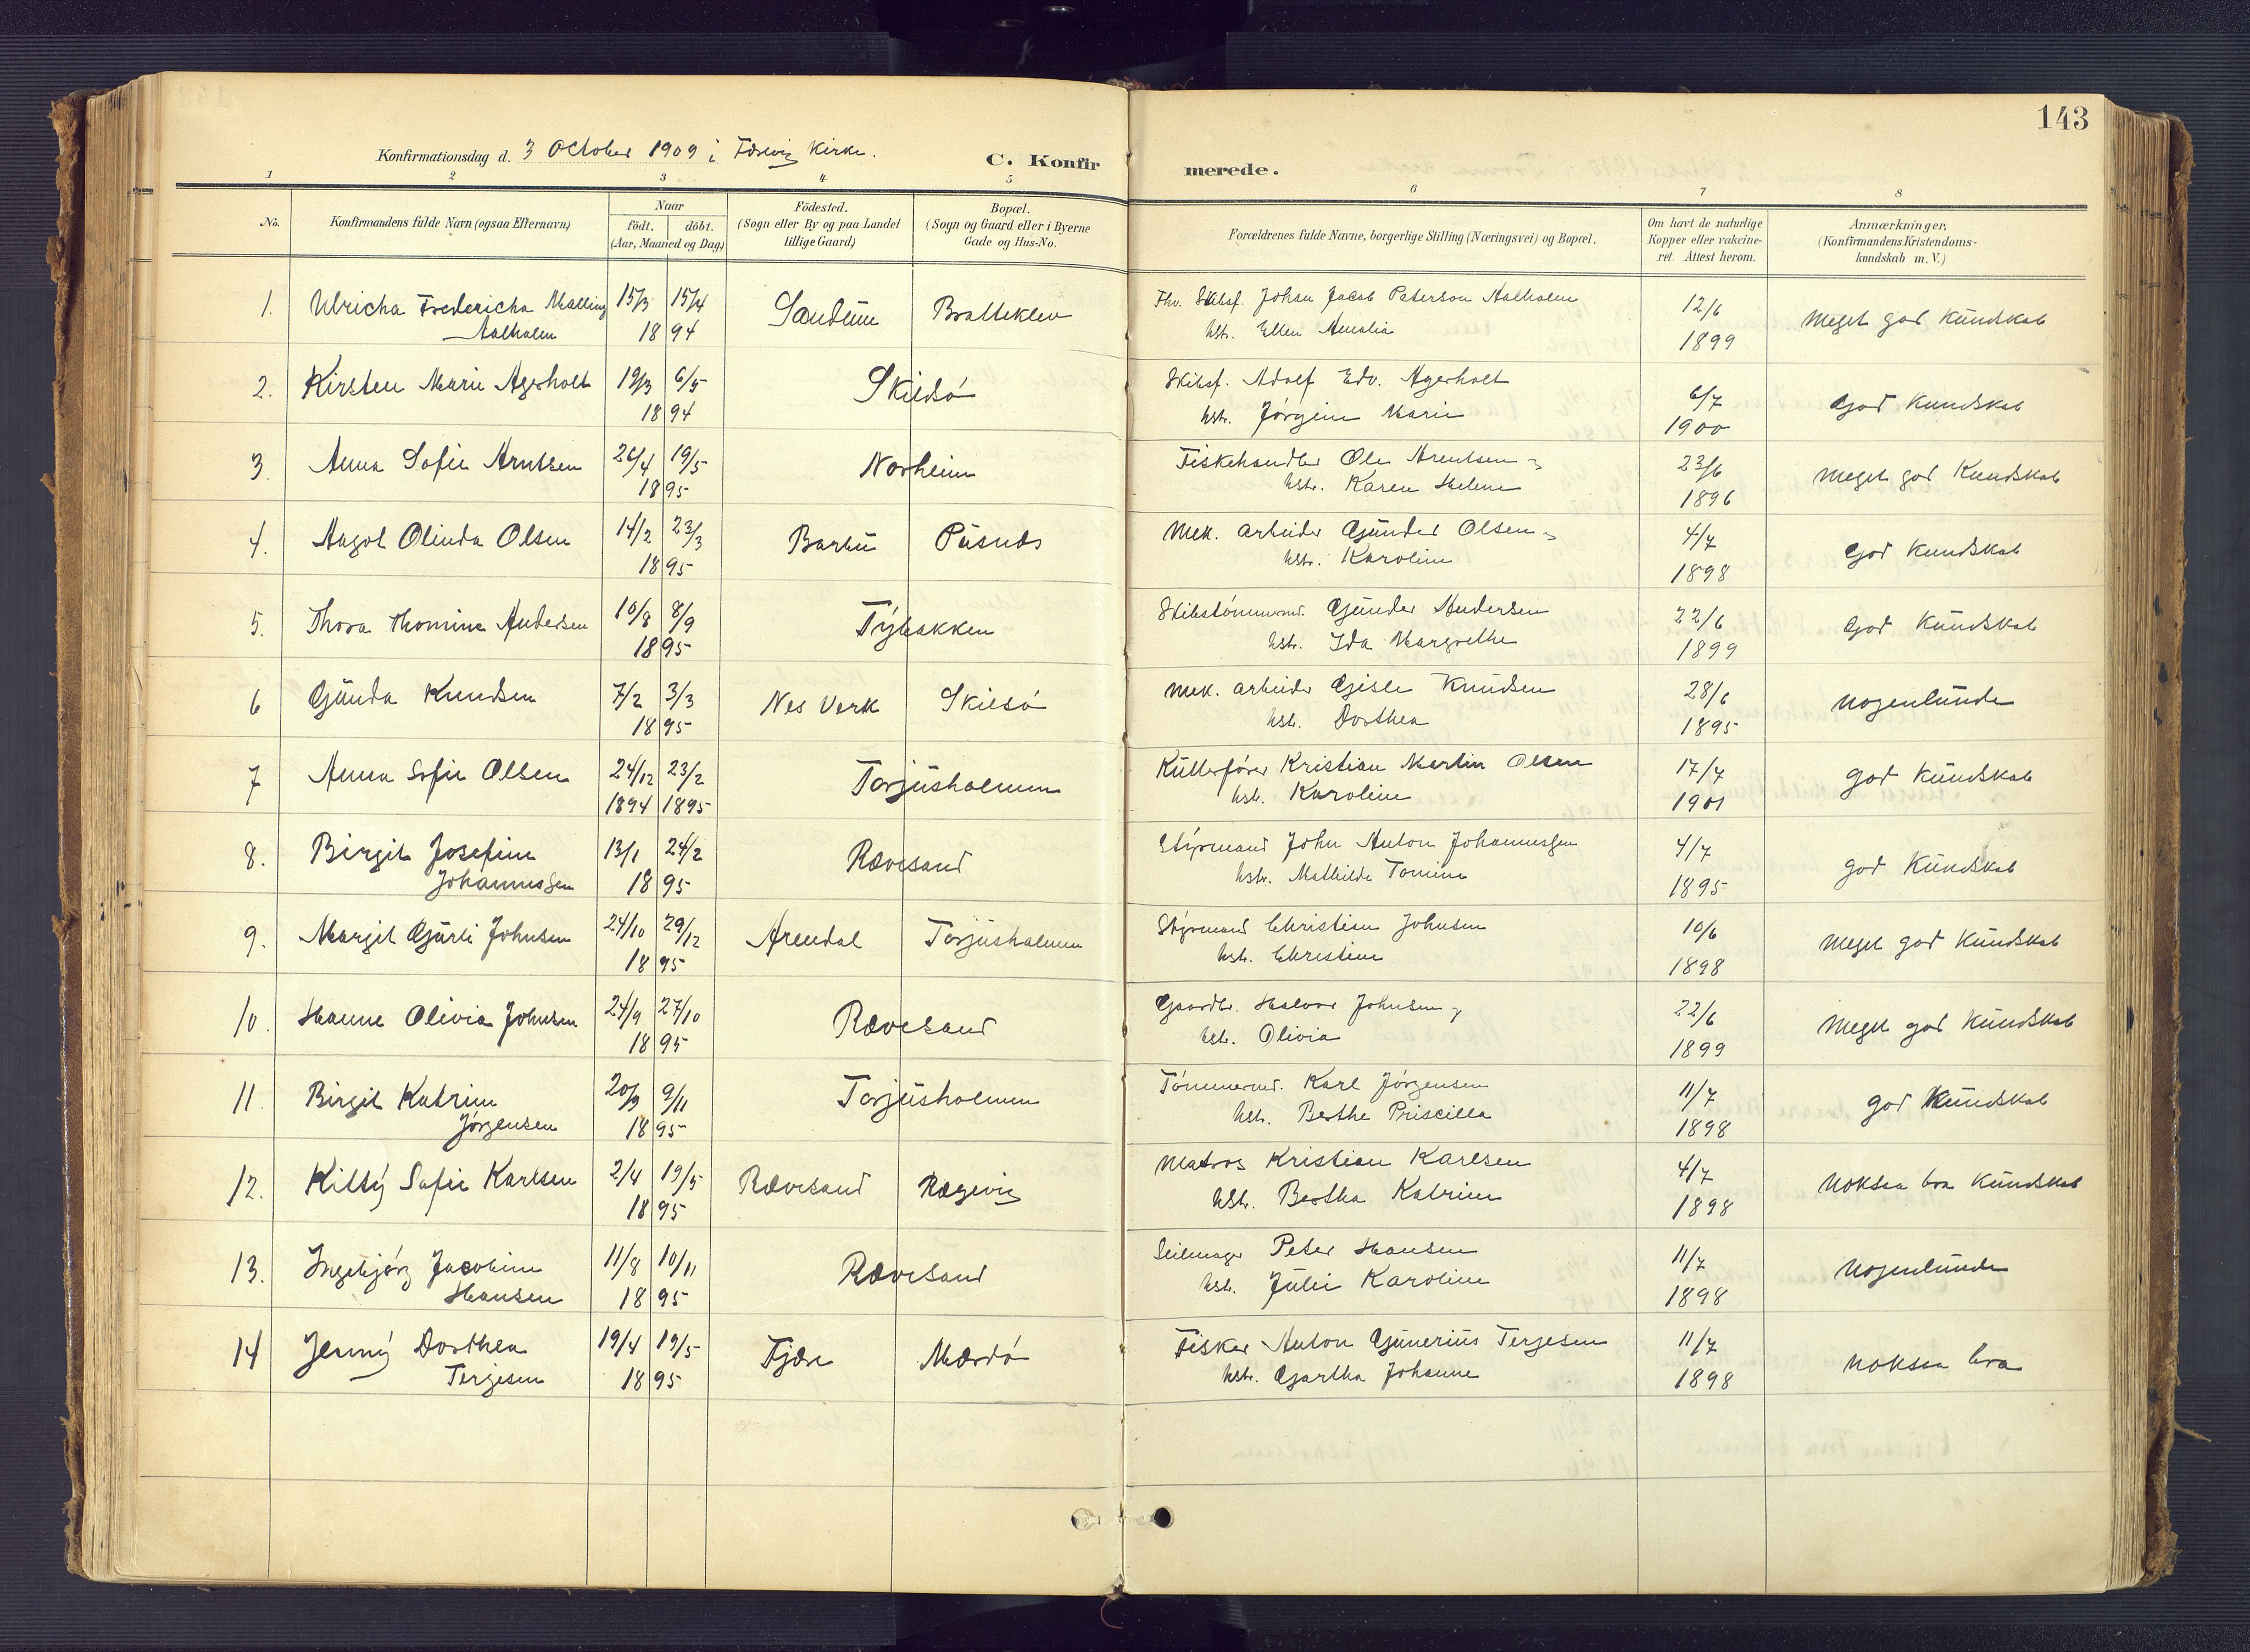 143
Konfirmationsdag d. 3 October 1909 i Færvig Kirke.
C. Konfirmerede.
1 2 3 4 5 6 7 8
No.
Konfirmandens fulde Navn (ogsaa Efternavn)
Naar
födt. döbt.
(Aar, Maaned og Dag)
Födested.
(Sogn eller By og paa Landet
tillige Gaard)
Bopæl.
(Sogn og Gaard eller i Byerne
Gade og Hus-No.
Forældrenes fulde Navne, borgerlige Stilling (Næringsvei) og Bopæl.
Om havt de naturlige
Kopper eller vakcine-
ret. Attest herom.
Anmærkninger,
(Konfirmandens Kristendoms-
kundskab m. V.)
1. Ulricha Fredericha Malling 15/3 15/4 Sandum Bratteklev Fhv. Skibsf. Johan Jacob Peterson Aalholm 12/6 Meget god Kundskab
Aalholm 18 94 hstr. Ellen Amalia 1899
2. Kirsten Marie Agerholt 19/3 6/5 Skilsö Skibsf. Adolf Edv. Agerholt 6/7 God Kundskab
18 94 hstr. Jörgine Marie 1900
3. Anna Sofie Arntsen 26/4 19/5 Norheim Fiskehandler Ole Arentsen 23/6 Meget god Kundskab
18 95 hstr. Karen Helene 1896
4. Aagot Olinda Olsen 14/2 23/3 Barbu Pusnes Mek. arbeider Gunder Olsen 4/7 God Kundskab
18 95 hstr. Karoline 1898
5. Thora Thomine Andersen 10/8 8/9 Tybakken Skibstömmermd. Gunder Andersen 22/6 God Kundskab
18 95 hstr. Ida Margrethe 1899
6 Gunda Knudsen 7/2 3/3 Nes Verk Skilsö Mek. arbeider Gisle Knudsen 28/6 Nogenlunde
18 95 hstr. Dorthea 1895
7 Anna Sofie Olsen 24/12 23/2 Torjusholmen Kutterförer Kristian Martin Olsen 17/7 god Kundskab
1894 1895 hstr. Karoline 1901
8. Birgit Josefine 13/1 24/2 Rævesand Styrmand John Anton Johannessen 4/7 god Kundskab
Johannessen 18 95 hstr. Mathilde Tomine 1895
9. Margit Gurli Johnsen 24/10 29/12 Arendal Torjusholmen Styrmand Christian Johnsen 10/6 Meget god Kundskab
18 95 hstr. Christine 1898
10. Hanne Olivia Johnsen 24/9 27/10 Rævesand Gaardbr. Halvor Johnsen 22/6 Meget god Kundskab
18 95 hstr. Olivia 1899
11. Birgit Katrine 20/9 9/11 Torjusholmen Tömmermd. Karl Jörgensen 11/7 god Kundskab
Jörgensen 18 95 hstr. Berthe Priscilla 1898
12. Kitty Sofie Karlsen 2/4 19/5 Rævesand Rægevig Matros Kristian Karlsen 4/7 Noksaa bra Kundskab
18 95 hstr. Bertha Katrine 1898
13. Ingebjörg Jacobine 11/8 10/11 Rævesand Seilmager Peter Hansen 11/7 Nogenlunde
Hansen 18 95 hstr. Julie Karoline 1898
14 Jenny Dorthea 19/4 19/5 Fjære Mærdö Fisker Anton Gunerius Terjesen 11/7 Noksaa bra
Terjesen 18 95 hstr. Gjartha Johanne 1898